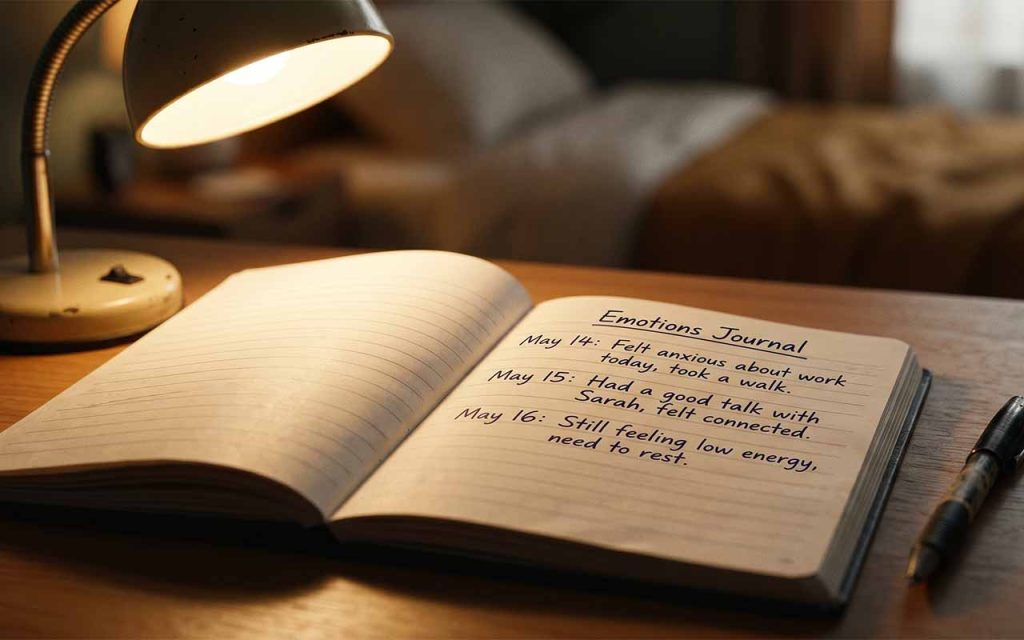 Emotions Journal
May 14: Felt anxious about work
today, took a walk.
May 15: Had a good talk with
Sarah, felt connected.
May 16: Still feeling low energy,
need to rest.